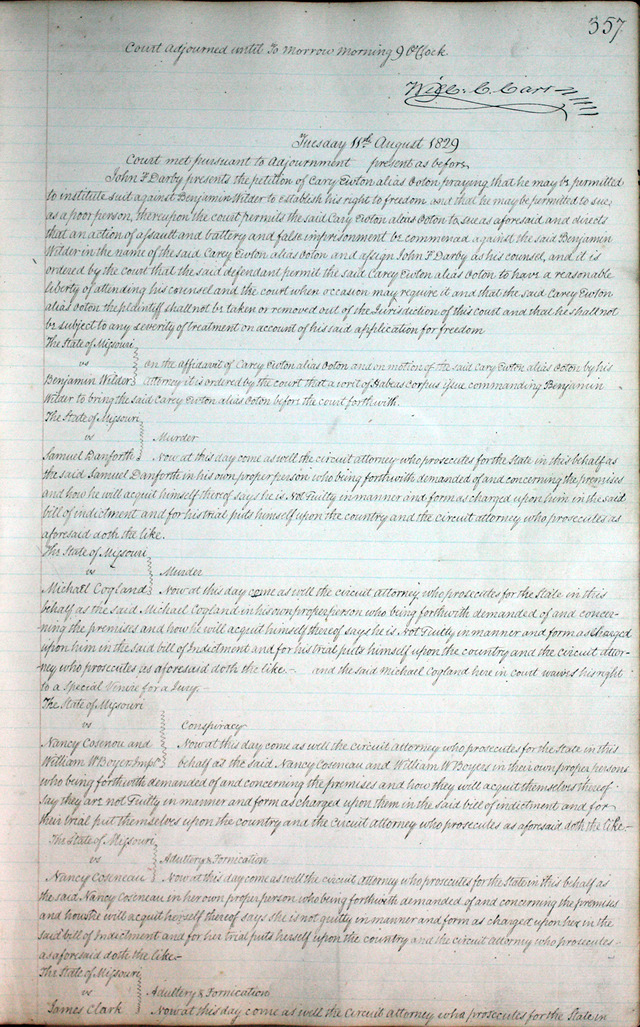 357
Court adjourned until To Morrow Morning 9 O'Clock
Will. C. Carr
Tuesday 11th August 1829
Court met pursuant to Adjournment present as before
John F Darby presents the petition of Cary Ewton alias Ooton praying that he may be permitted
to institute suit against Benjamin Wilder to establish his right to freedom and that he may be permitted to sue
as a poor person, thereupon the court permits the said Cary Ewton alias Ooton to sue as aforesaid and directs
that an action of assault and battery and false imprisonment be commenced against the said Benjamin
Wilder in the name of the said Carey Ewton alias Ooton and assign John F Darby as his counsel, and it is
ordered by the court that the said defendant permit the said Carey Ewton alias Ooton to have a reasonable
liberty of attending his counsel and the court when occasion may require it and that the said Carey Ewton
alias Ooton the plaintiff shall not be taken or removed out of the Jurisdiction of this court and that he shall not
be subject to any severity of treatment on account of his said application for freedom
The State of Missouri
vs
On the Affidavit of Carey Ewton alias Ooton and on motion of the said Cary Ewton alias Ooton by his
Benjamin Wilder attorney it is ordered by the court that a writ of Habeas Corpus issue commanding Benjamin
Wilder to bring the said Carey Ewton alias Ooton before the court forthwith.
The State of Missouri
vs Murder
Samuel Danforth Now at this day come as well the circuit attorney who prosecutes for the State in this behalf as
the said Samuel Danforth in his own proper person who being forthwith demanded of and concerning the premises
and how he will acquit himself thereof says he is Not Guilty in manner and form as charged upon him in the said
bill of indictment and for his trial puts himself upon the country and the circuit attorney who prosecutes as
aforesaid doth the like.
The State of Missouri
vs Murder
Michael Cogland Now at this day come as well the circuit attorney who prosecutes for the State in this
behalf as the said Michael Cogland in his own proper person who being forthwith demanded of and concer-
-ning the premises and how he will acquit himself thereof says he is Not Guilty in manner and form as charged
upon him in the said bill of Indictment and for his trial puts himself upon the country and the circuit attor-
-ney who prosecutes as aforesaid doth the like.- and the said Michael Cogland here in court waives his right
to a Special Venire for a Jury-
The State of Missouri
vs Conspiracy
Nancy Cosenou and Now at this day come as well the circuit attorney who prosecutes for the State in this
William W Boyer behalf as the said Nancy Coseneau and William W Boyers in their own proper persons
who being forthwith demanded of and concerning the premises and how they will acquit themselves thereof
Say they are not Guilty in manner and form as charged upon them in the said bill of indictment and for
their trial put themselves upon the country and the circuit attorney who prosecutes as aforesaid doth the like-
The State of Missouri
vs Adultery & Fornication
Nancy Coseneau Now at this day come as well the circuit attorney who prosecutes for the State in this behalf as
the said Nancy Coseneau in her own proper person who being forthwith demanded of and concerning the premises
and how she will acquit herself thereof says she is not guilty in manner and form as charged upon her in the
said bill of Indictment and for her trial puts herself upon the country and the circuit attorney who prosecutes
as aforesaid doth the like-
The State of Missouri
vs Adultery & Fornication
James Clark Now at this day come as well the circuit attorney who prosecutes for the State in